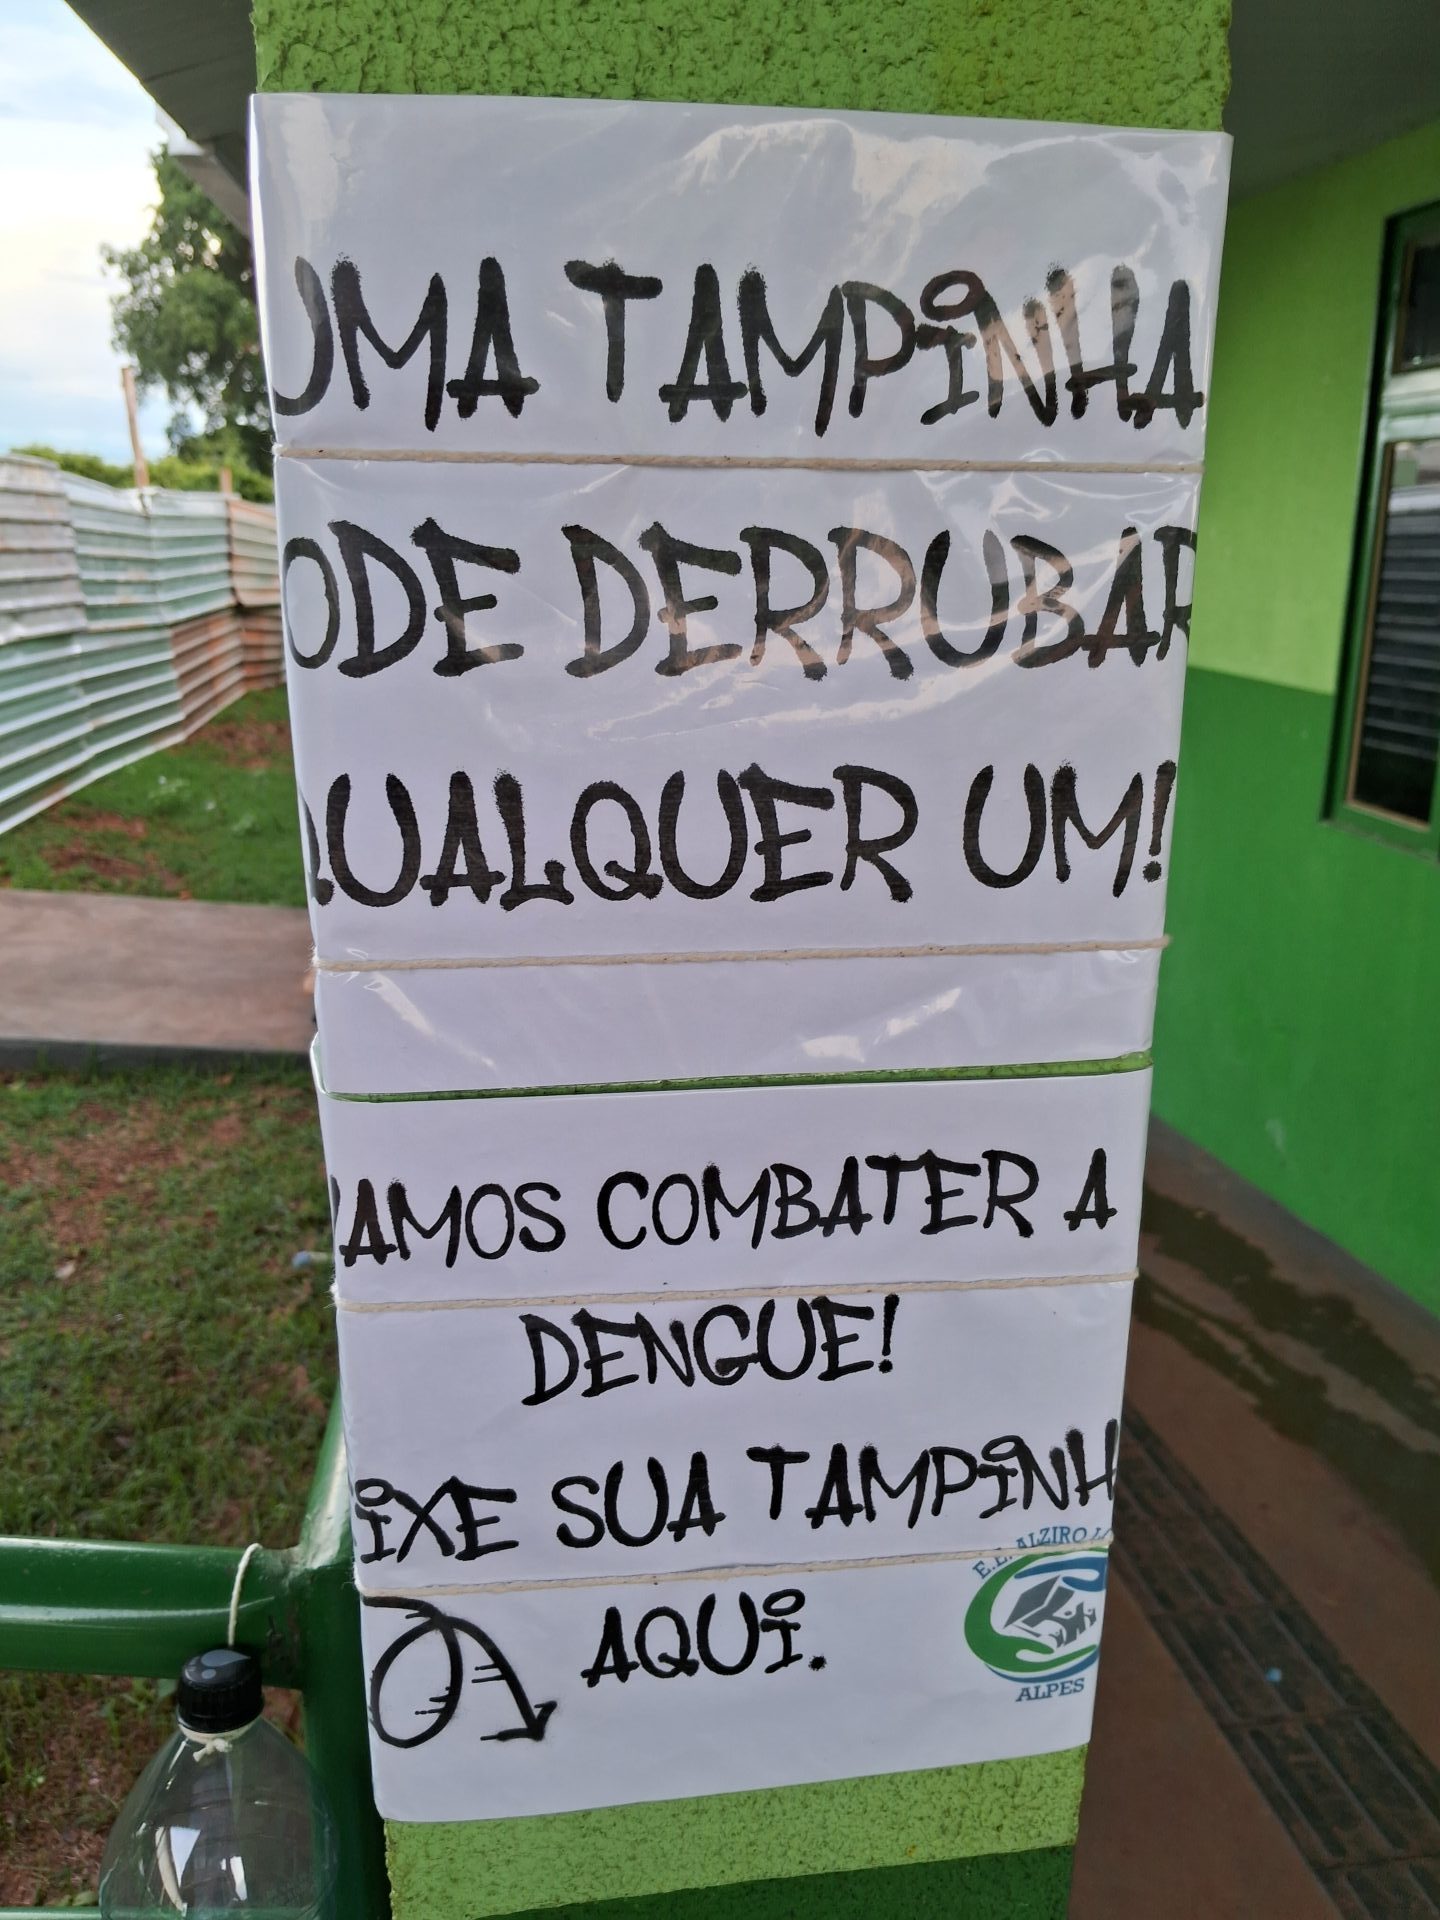 UMA TAMPINHA
ODE DERRUBAR
QUALQUER UM!
VAMOS COMBATER A
DENGUE!
IXE SUA TAMPINH
AQUI.
E.E. ALZIRO LO
ALPES